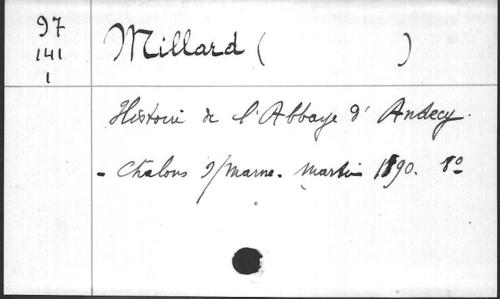 97
141
1
Millard ( )
Histoire de l'Abbaye d'Andecy.
- Chalons s/Marne. Martin 1890. 8º